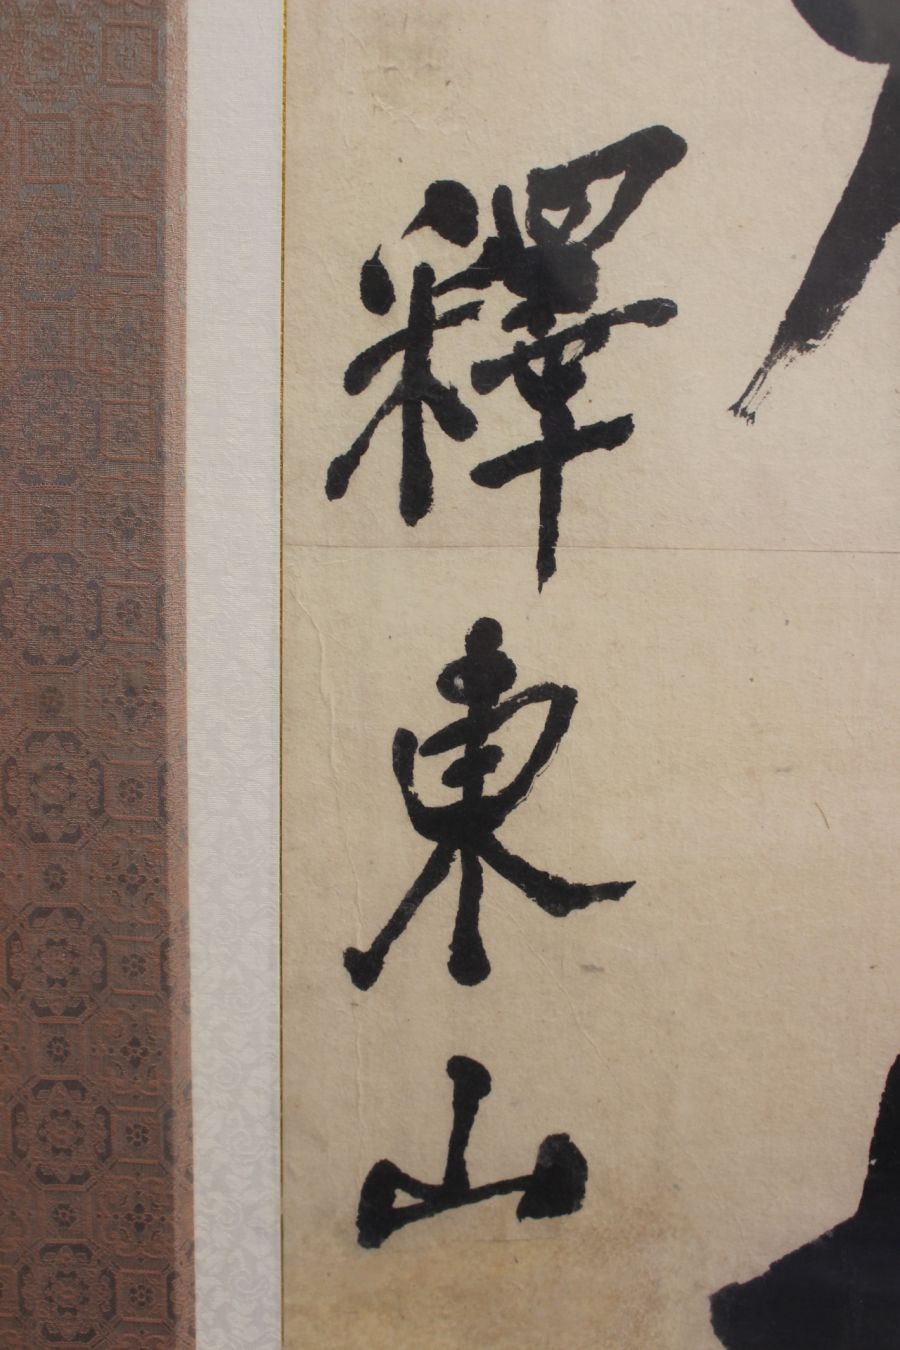 釋東山